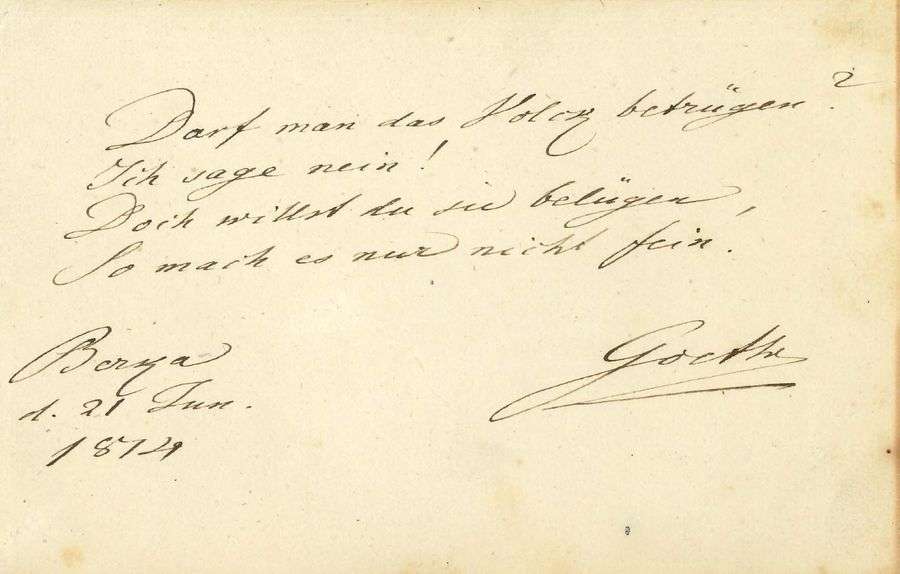 Darf man das Volck betrügen?
Ich sage nein!
Doch willst du sie belügen,
So mach es nur nicht fein.
Berka
d. 21 Jun.
1814
Goethe